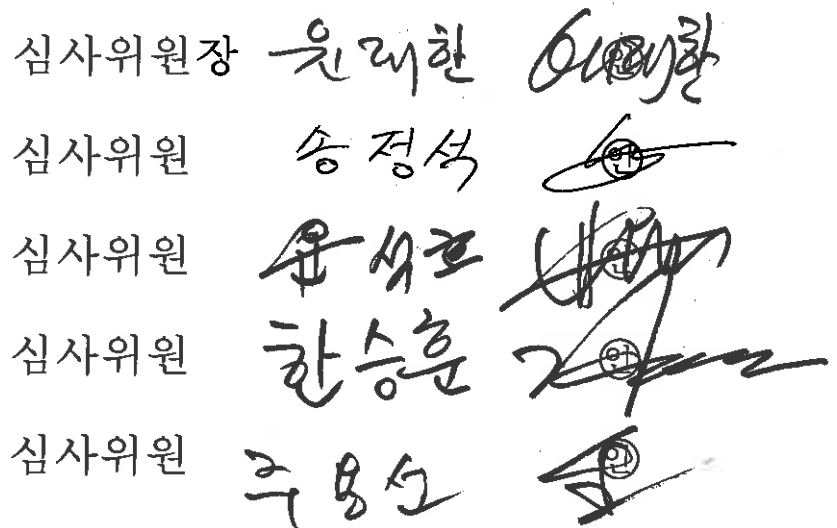 심사위원장 윤대한 ㊞
심사위원 송정석 ㊞
심사위원 윤석호 ㊞
심사위원 한승훈 ㊞
심사위원 주용선 ㊞